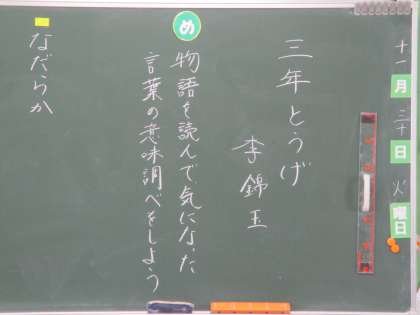 十一月三十日火曜日
三年とうげ
李錦玉
め
物語を読んで気になった
言葉の意味調べをしよう
なだらか